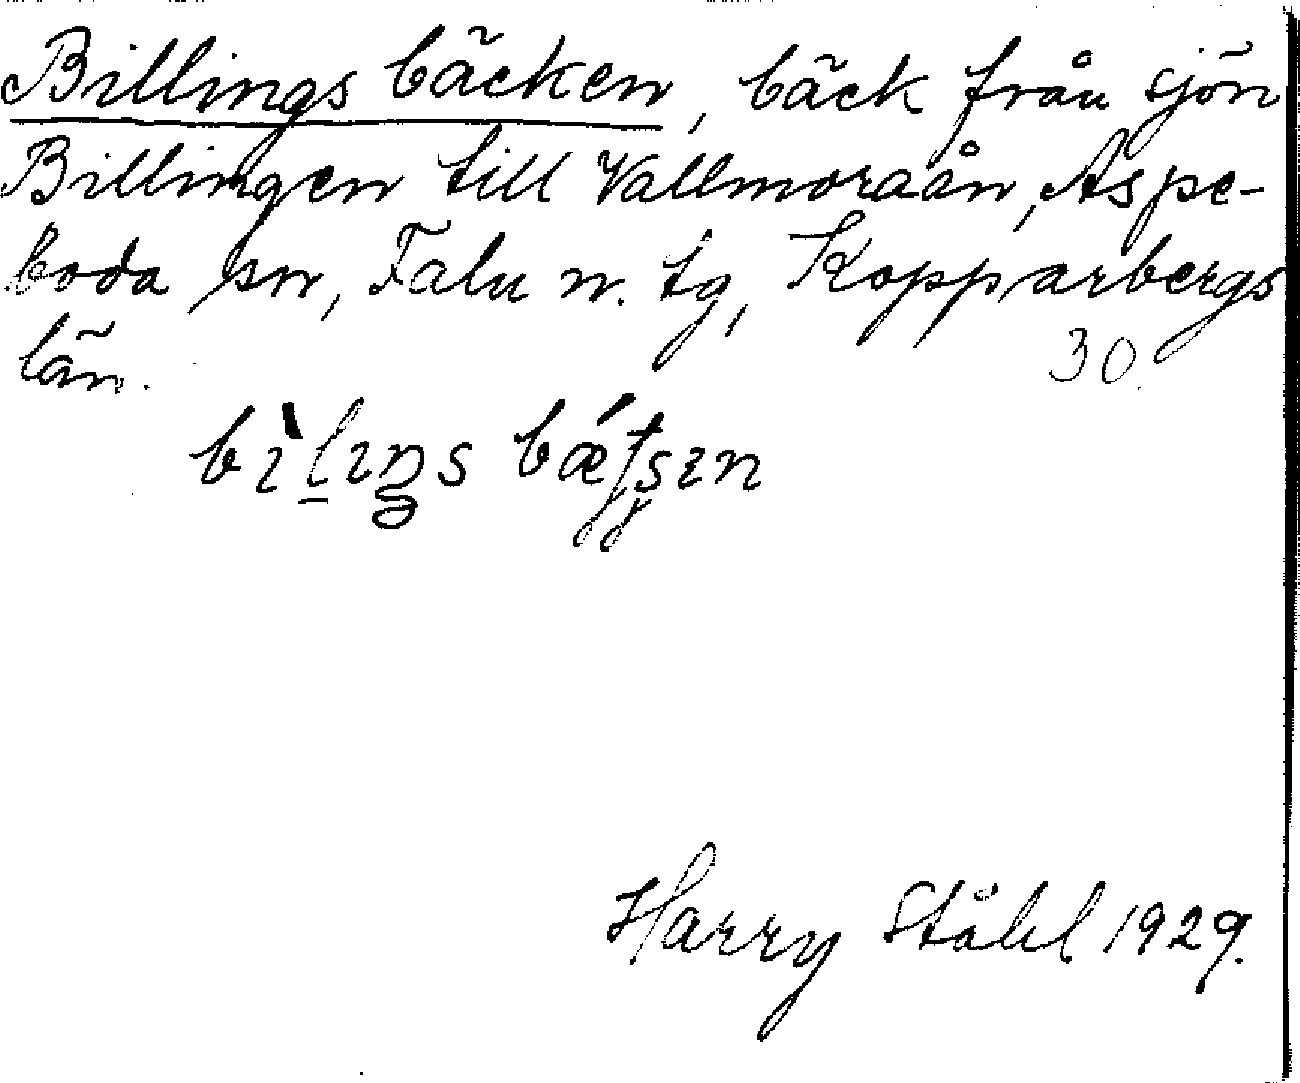 Billings bäcken, bäck från sjön
Billingen till Vallmoraån, Aspe-
boda sn, Falu n. tg, Kopparbergs
län.
30.
Harry Ståhl 1929.